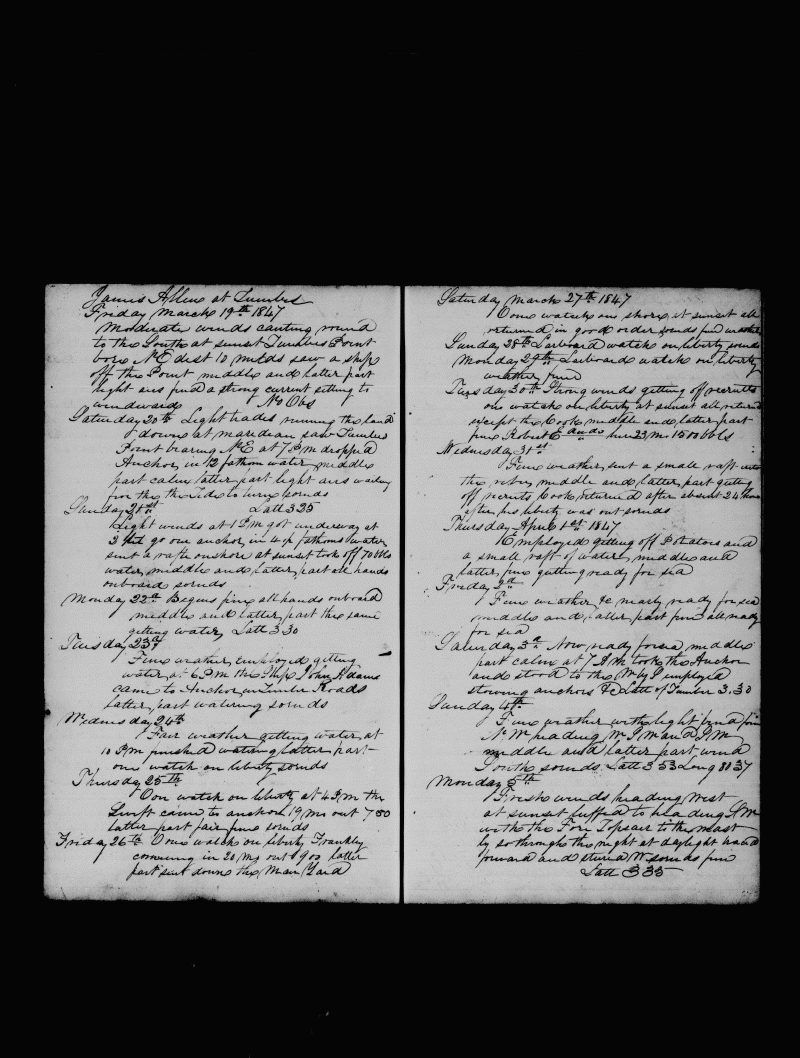 James Allen at Tumbes
Friday March 19th 1847
Moderate winds canting round
to the South at sunset Tumbes Point
bore NE dist 10 miles saw a ship
off the Point middle and latter part
light airs find a strong current setting to
windward No Obs
Saturday 20th Light trades running the land
down at meridian saw Tumbes
Point bearing NE at 7 PM dropped
Anchor in 12 fathom water middle
part calm latter part light airs waiting
for the the tide to turn sounds
Sunday 21st Latt 3 35
Light winds at 1 PM got underway at
3 let go our anchor in 4 fathoms water
sent a raft onshore at sunset took off 70 bbls
water middle and latter part all hands
onboard sounds
Monday 22d Begins fine all hands onboard
middle and latter part the same
getting water Latt 3 30
Tuesday 23d
Fine weather employed getting
water at 6 PM the Ship John Adams
came to Anchor in Tumbes Roads
latter part watering sounds
Wednesday 24th
Fair weather getting water at
10 PM finished watering latter part
one watch on liberty sounds
Thursday 25th
One watch on liberty at 4 PM the
Swift came to anchor 19 ms out 750
latter part fair fine sounds
Friday 26th One watch on liberty Frankley
comming in 20 ms out 900 latter
part sent down the Main Yard
Saturday March 27th 1847
One watch on shore at sunset all
returned in good order sounds fine weather
Sunday 28th Larboard watch on liberty sounds
Monday 29th Larboard watch on liberty
weather fine
Tuesday 30th Strong winds getting off recruits
one watch on liberty at sunset all returned
except the Cook middle and latter part
fine Robert Edwards 23 ms 1500 bbls
Wednesday 31st
Fine weather sent a small raft into
the river middle and latter part getting
off recruits Cook returned after absent 24 hours
after his liberty was out sounds
Thursday April 1st 1847
Employed getting off Potatoes and
a small raft of water middle and
latter fine getting ready for sea
Friday 2d
Fine weather &c nearly ready for sea
middle and latter part fine all ready
for sea
Saturday 3d Now ready for sea middle
part calm at 7 AM took the Anchor
and stood to the W by S employed
stowing anchors &c Latt of Tumbes 3.30
Sunday 4th
Fine weather with light wind from
NW heading WSW and SW
middle and latter part wind
South sounds Latt 3 53 Long 81 37
Monday 5th
Fresh winds heading West
at sunset luffed to heading SW
with the Fore Topsail to the mast
by so through the night at daylight wared
forward and steered W sounds fine
Latt 3 35